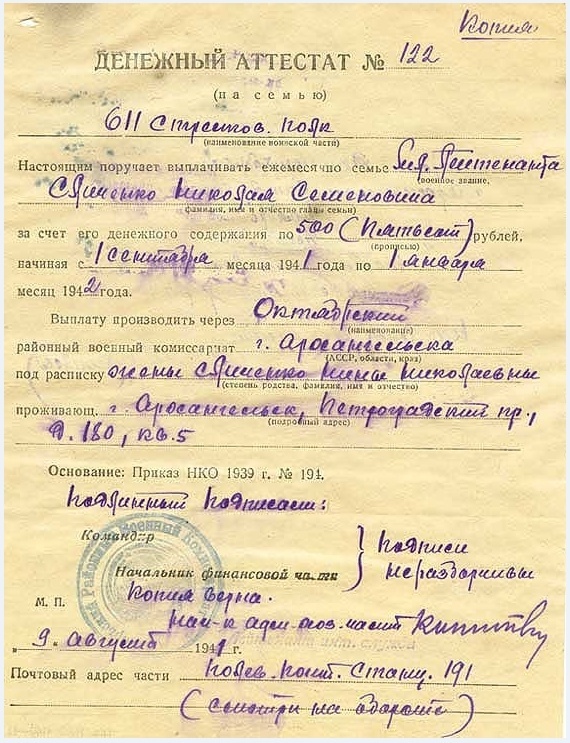 Копия
ДЕНЕЖНЫЙ АТТЕСТАТ № 122
(на семью)
611 Стрелков. полк
(наименование воинской части)
Настоящим поручает выплачивать ежемесячно семье мл. Лейтенанта
(воинское звание,
Николая Семеновича
фамилия, имя и отчество главы семьи)
за счет его денежного содержания по 500 (Пятьсот) рублей,
(прописью)
начиная с 1 сентября месяца 1941 года по 1 января
месяц 1942 года.
Выплату производить через Октябрский
(наименование)
районный военный комиссариат г. Архангельска
(АССР, области, края)
под расписку жены Нины Николаевны
(степень родства, фамилия, имя и отчество)
проживающ. г. Архангельск, Петроградский пр.,
(подробный адрес)
д. 180, кв. 5
Основание: Приказ НКО 1939 г. № 191.
Подлинный подписали:
Командир
Начальник финансовой части
подписи
неразборчивы
Копия верна.
М. П.
Нач-к адм. хоз. части
„ 9. август 1941 г.
Почтовый адрес части полев. почт. станц. 191
(смотри на обороте)